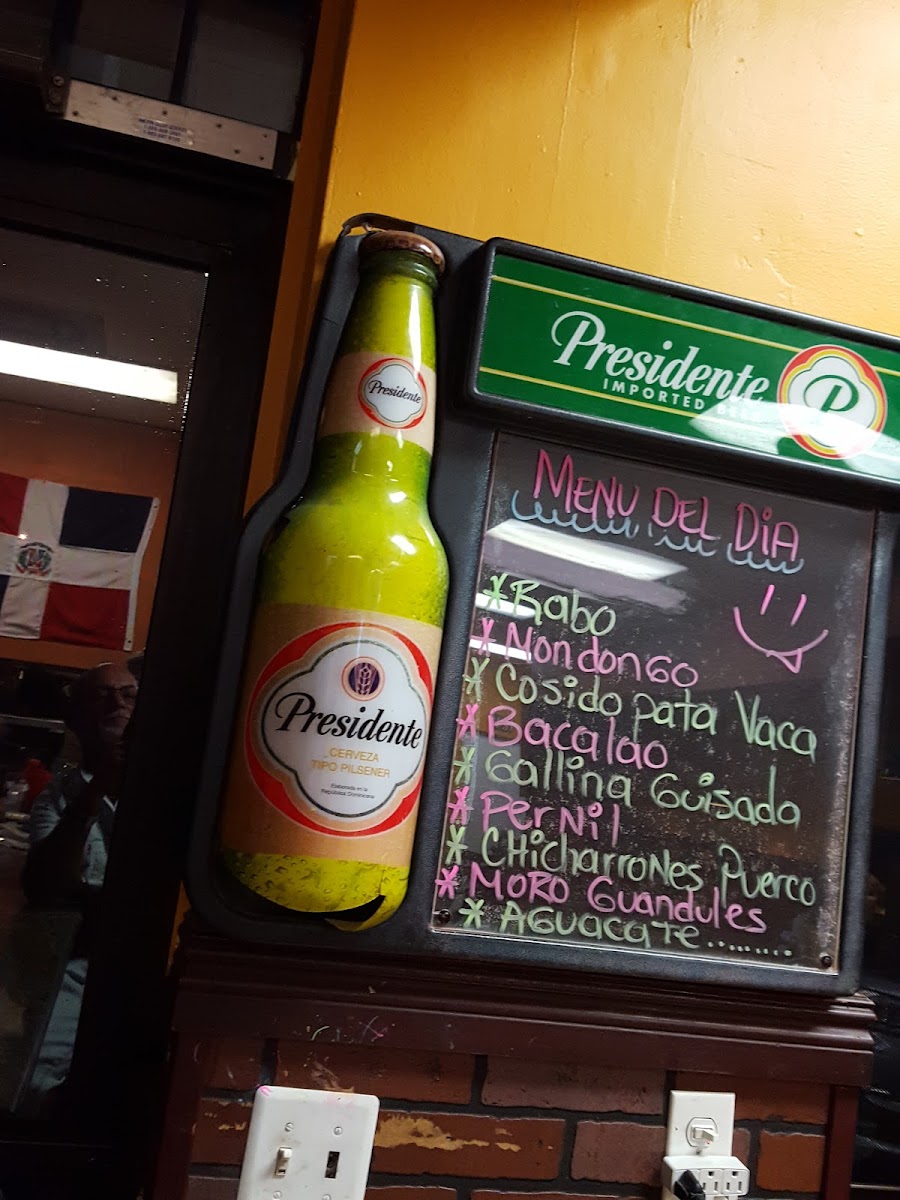 Presidente
IMPORTED BEER
P
Presidente
Presidente
CERVEZA
TIPO PILSENER
Elaborada en la
República Dominicana
MENU DEL DIA
*Rabo
*MondonGo
*Cosido pata Vaca
*Bacalao
*Gallina Guisada
*PerNil
*CHicharroNes Puerco
*MoRo Guandules
*AGuacate..........